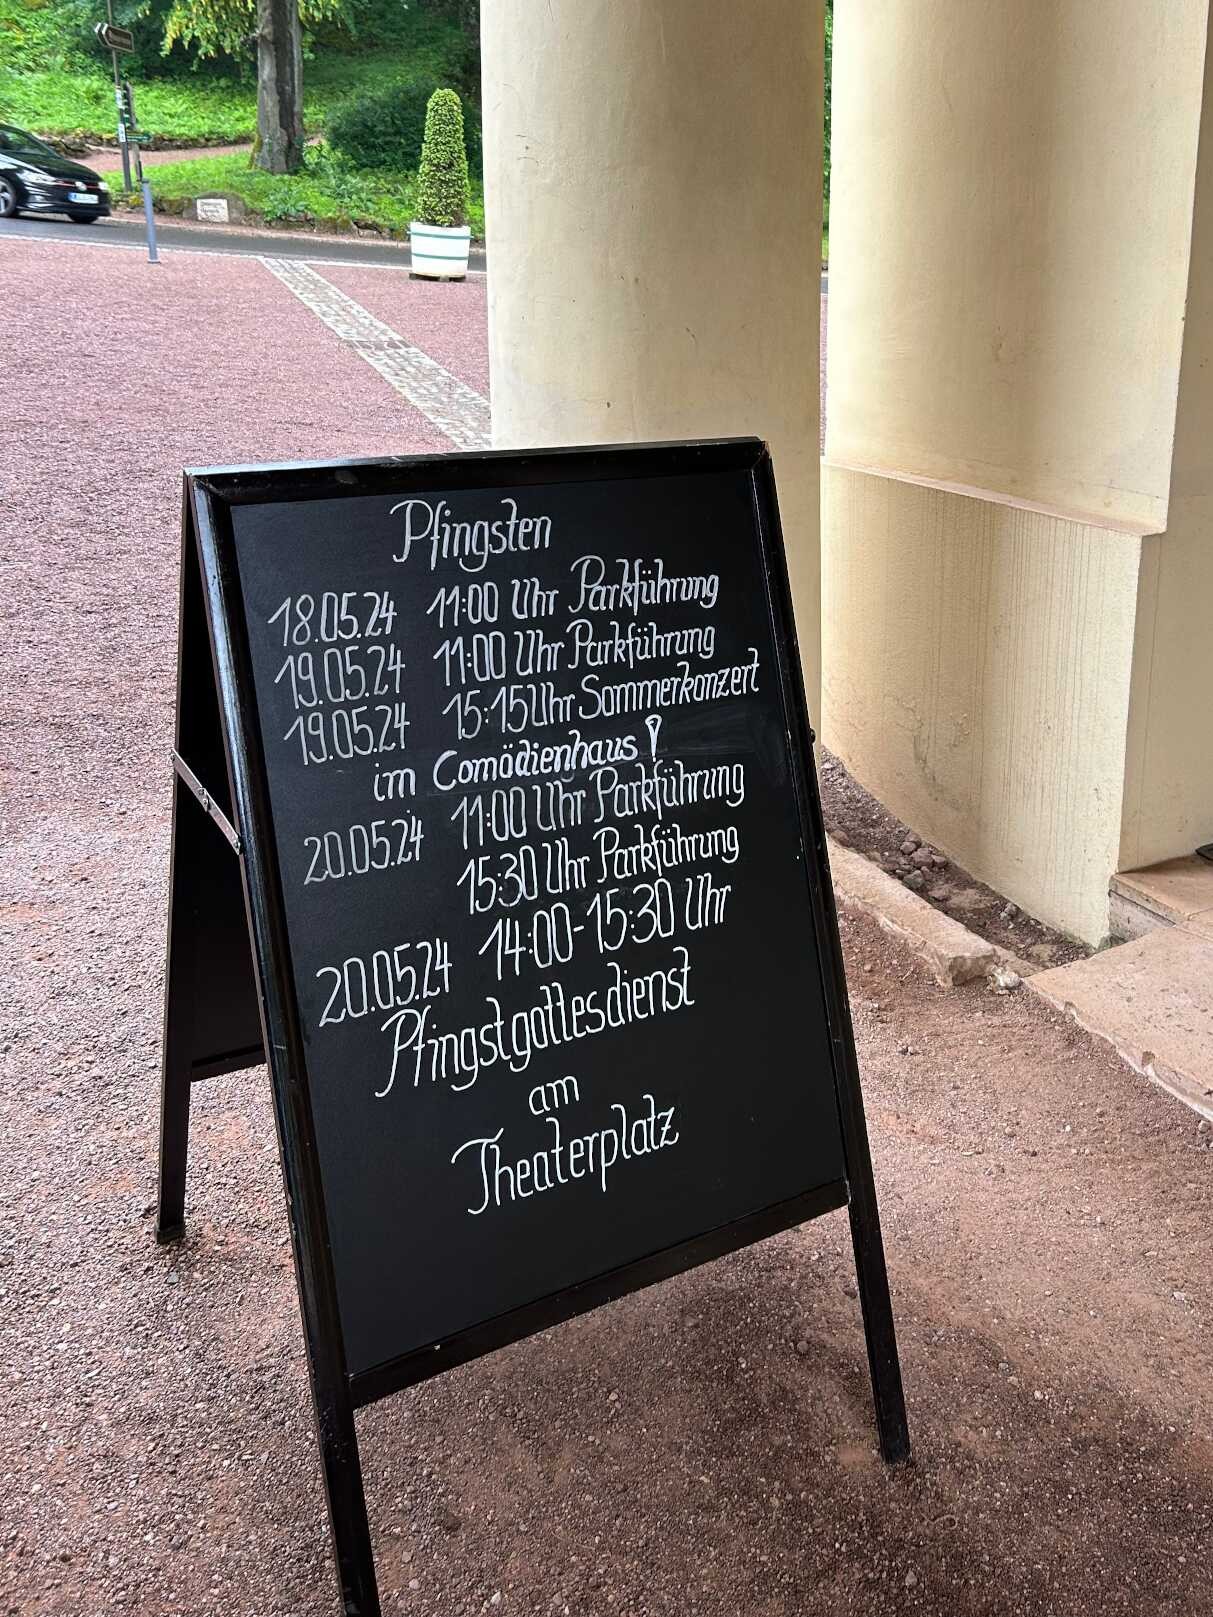 Pfingsten
18.05.24 11:00 Uhr Parkführung
19.05.24 11:00 Uhr Parkführung
19.05.24 15:15 Uhr Sommerkonzert
im Comödienhaus!
20.05.24 11:00 Uhr Parkführung
15:30 Uhr Parkführung
20.05.24 14:00-15:30 Uhr
Pfingstgottesdienst
am
Theaterplatz